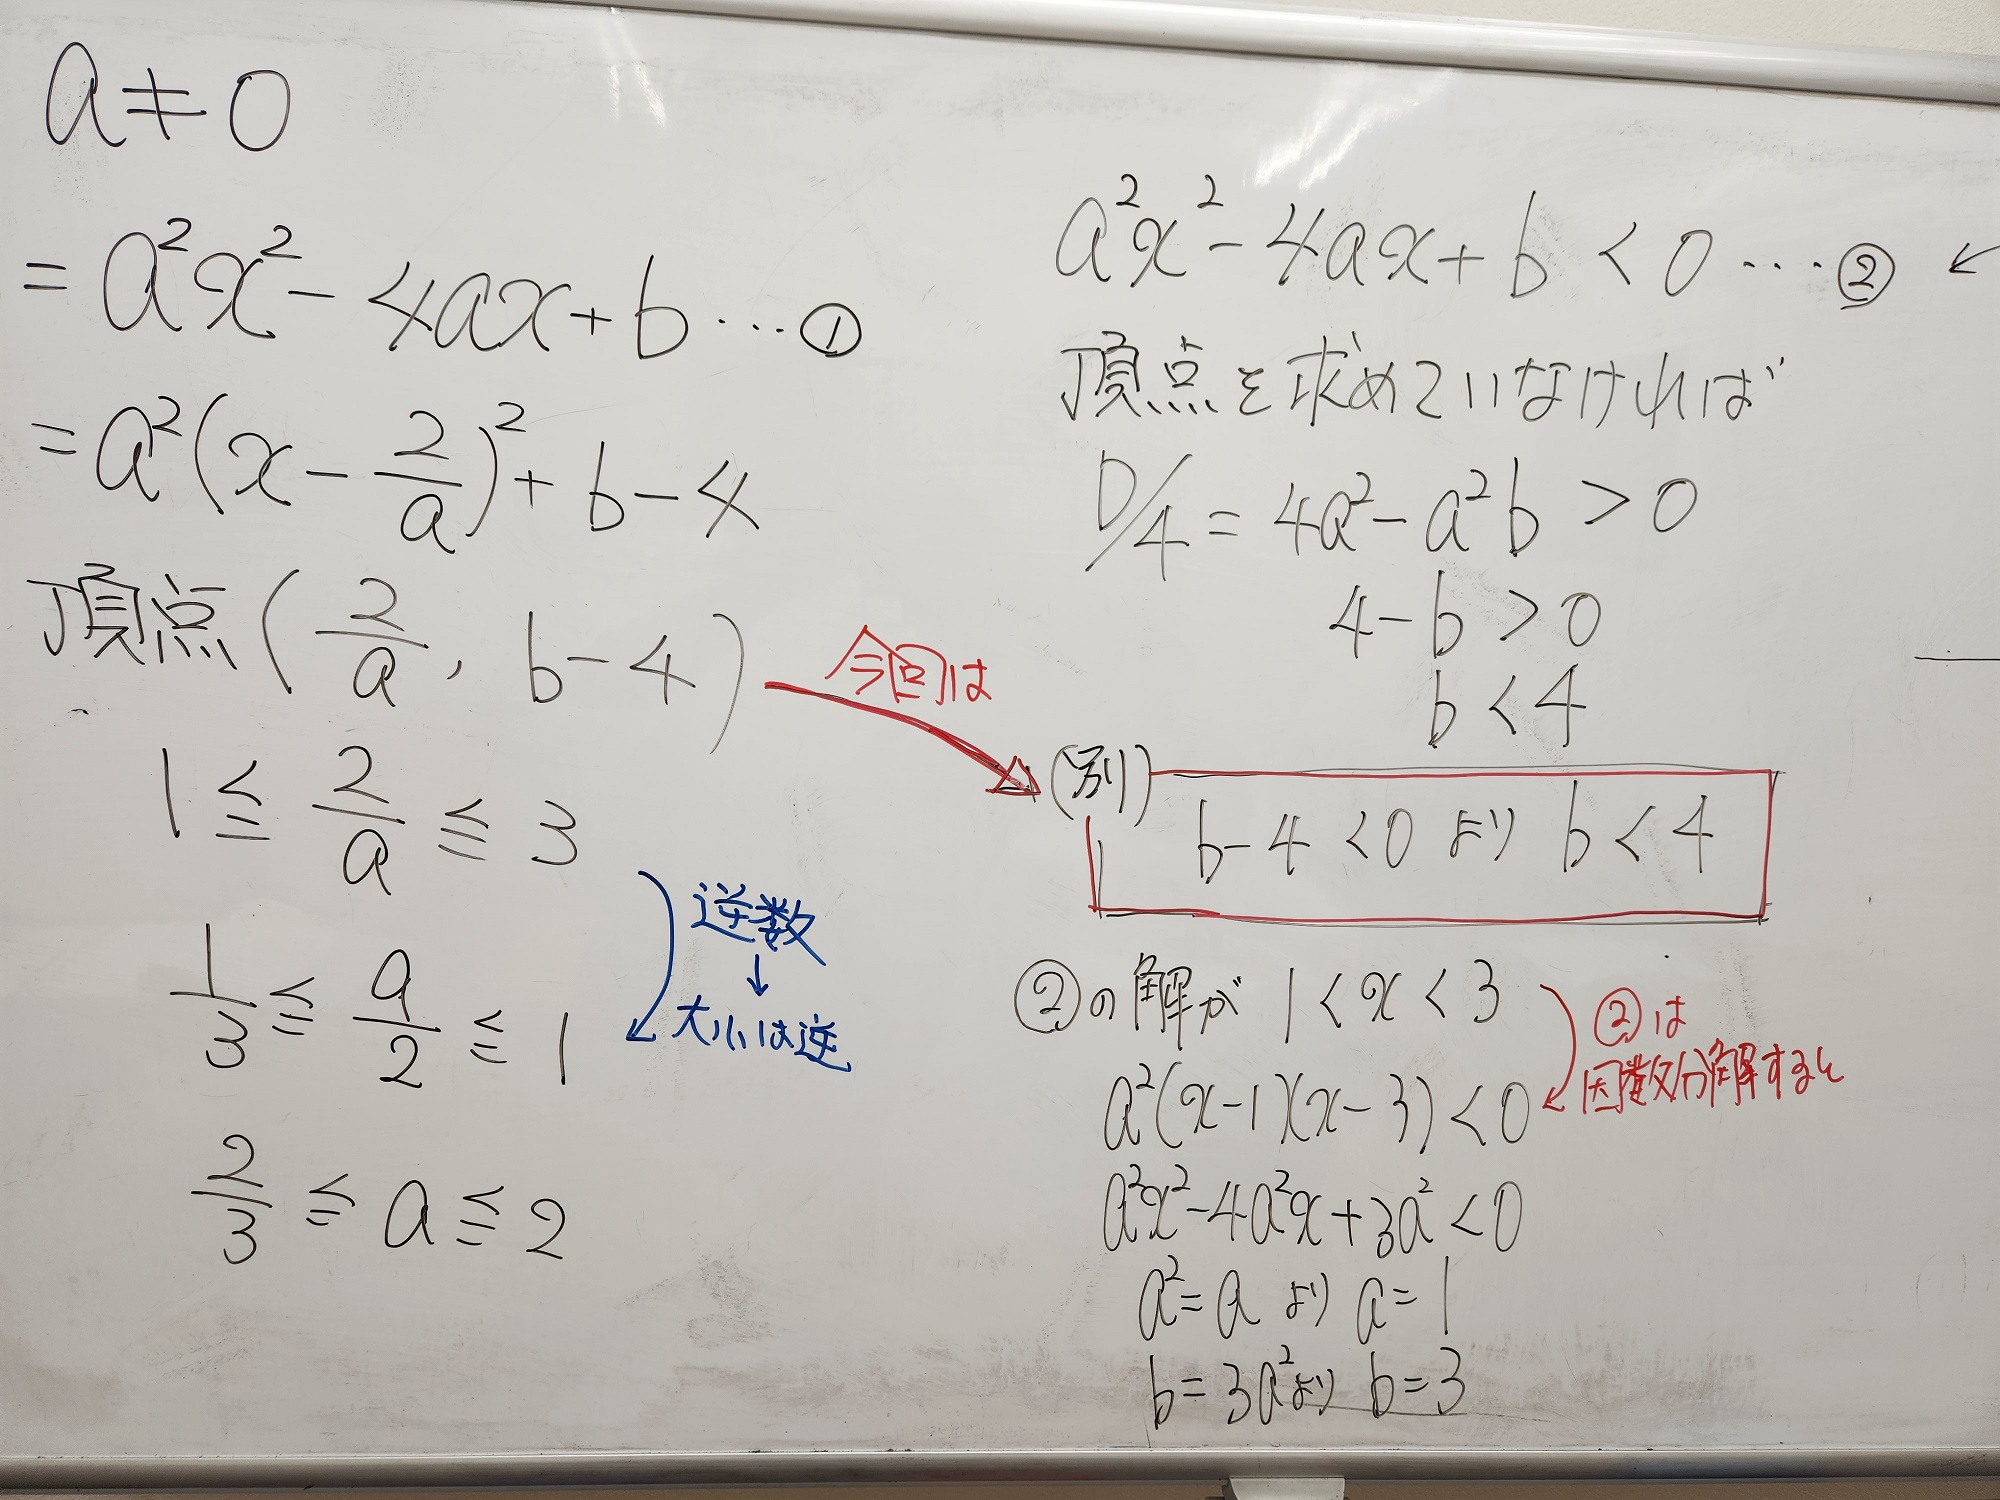 a≠0
= a²x² - 4ax + b … ①
= a²(x - 2/a)² + b - 4
頂点 (2/a, b - 4)
1 ≦ 2/a ≦ 3
1/3 ≦ a/2 ≦ 1
2/3 ≦ a ≦ 2
逆数
↓
大小は逆
今回は
a²x² - 4ax + b < 0 … ② ←
頂点を求めていなければ
D/4 = 4a² - a²b > 0
4 - b > 0
b < 4
(別)
b - 4 < 0 より b < 4
②の解が 1 < x < 3
②は
因数分解すると
a²(x-1)(x-3) < 0
a²x² - 4a²x + 3a² < 0
a² = a より a = 1
b = 3a² より b = 3